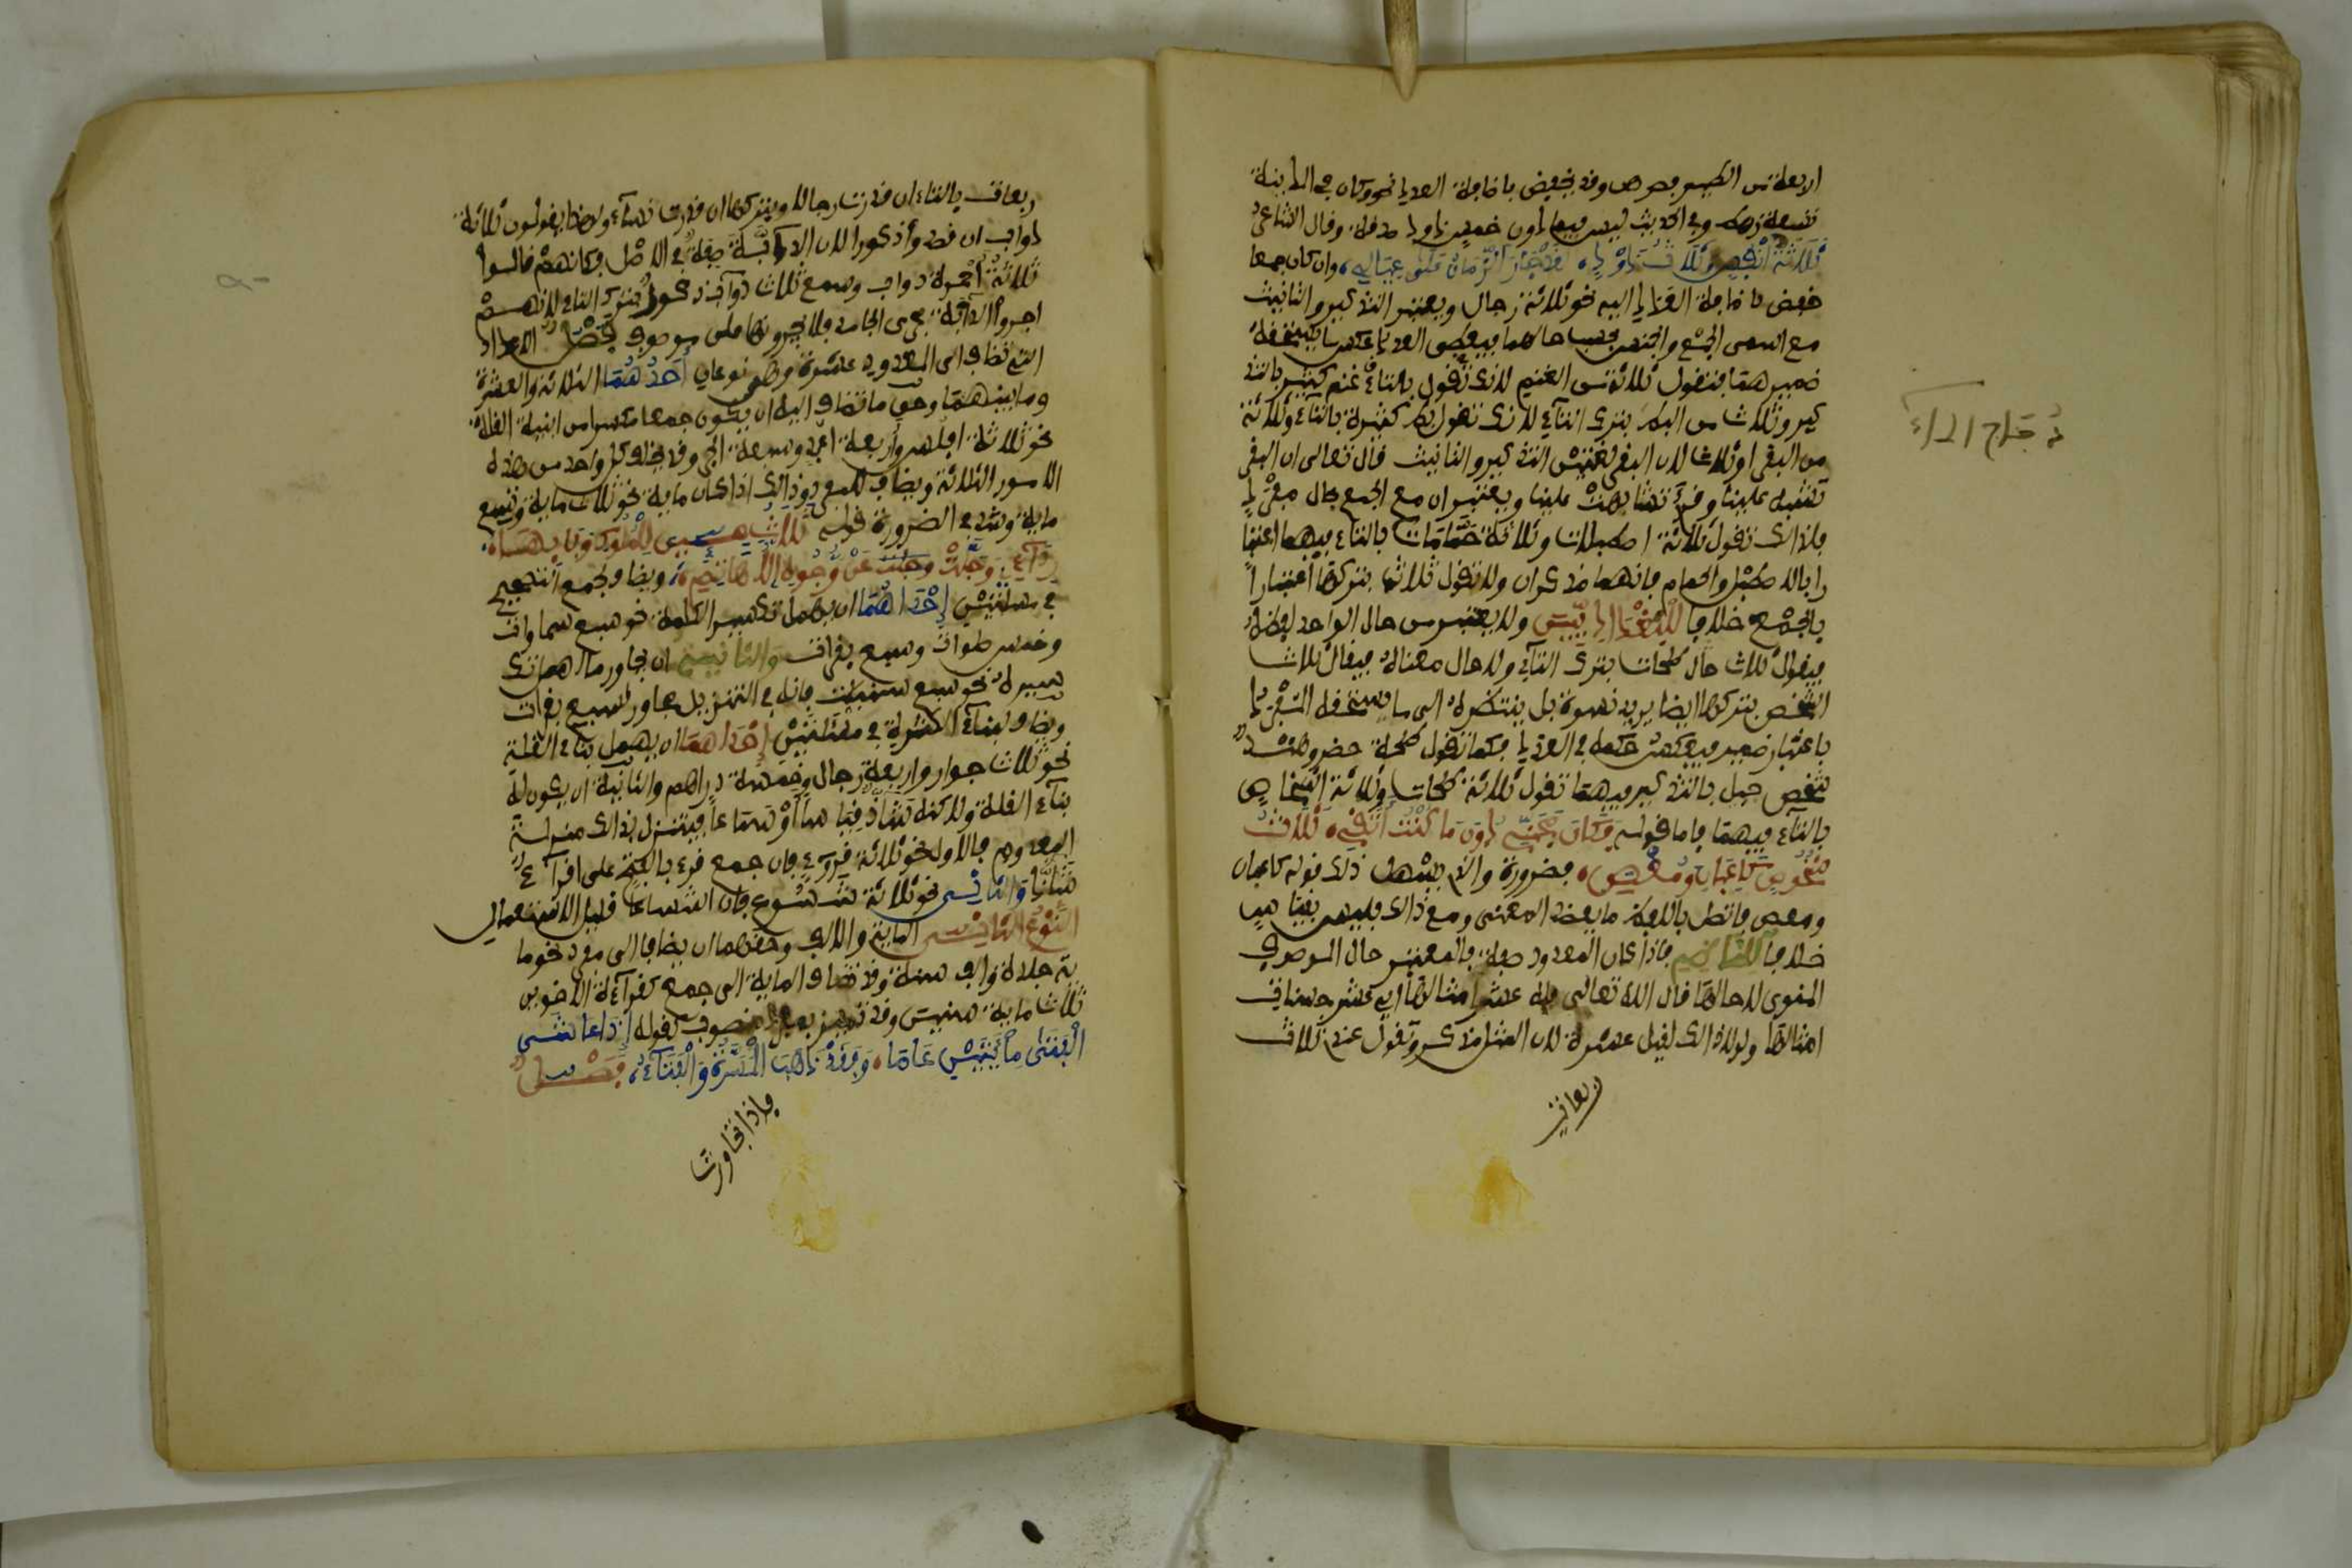 اربعة من الطير فصرهن وقد يخفض باضافة العدد نحو وكان في المدينة
تسعة رهط وفي الحديث ليس فيما دون خمس ذود صدقة وقال الشاعر
ثلاثة أنفس وثلاث ذود، لقد جار الزمان على عيالي، وان كان جمعا
خفض باضافة العدد اليه نحو ثلاثة رجال ويعتبر التذكير والتانيث
مع اسمى الجمع والجنس بحسب حالهما فيعطى العدد عكس ما يستحقه
ضميرهما فتقول ثلاثة من الغنم لانك تقول بالتاء غنم كثير بالتذ
كير وثلاث من البط بترك التاء لانك تقول بط كثيرة بالتاء وثلاثة
من البقر او ثلاث لان البقر يعتبر التذكير والتانيث قال تعالى ان البقر
تشبه علينا وقرئ تشابهت علينا ويعتبران مع الجمع بحال مفرد
فلذلك تقول ثلاثة اصطبلات وثلاثة حمامات بالتاء فيهما اعتبا
را بالاصطبل والحمام فانهما مذكران ولا تقول ثلاث بتركها اعتبارا
بالجمع خلافا للبغداديين ولا يعتبر من حال الواحد لفظه
فيقول ثلاث طلحات بترك التاء ولا حال معناه فيقال ثلاث
اشخص بتركها ايضا يريد نسوة بل ينتظر الى ما يستحقه المفرد
باعتبار ضميره فيعكس حكمه في العدد فكما تقول طلحة حضر وهند
شخص جميل بالتذكير فيهما تقول ثلاثة طلحات وثلاثة اشخاص
بالتاء فيهما فاما قوله فكان مجني دون ما كنت أتقي، ثلاث
شخوص كاعبان ومعصر، فضرورة والذي سهل ذلك قوله كاعبان
ومعصر فاتصل باللفظ ما يعضد المعنى ومع ذلك فليس بقياس
خلافا للناظم فاذا كان المعدود صفة فالمعتبر حال الموصوف
المنوي لا حالها قال الله تعالى فله عشر امثالها اي عشر حسنات
امثالها ولولا ذلك لقيل عشرة لان المثل مذكر وتقول عندي ثلاث
ربعات
ربعات بالتاء ان قدرت رجالا وبتركها ان قدرت نساء ولهذا يقولون ثلاثة
دواب ان قصدوا ذكورا لان الدابة صفة في الاصل فكانهم قالوا
ثلاثة احمرة دواب وسمع ثلاث دواب ذكور بترك التاء لانهم
اجروا الدابة مجرى الجامد فلا يجرونها على موصوف فصل الاعداد
التي تضاف الى المعدود عشرة وهي نوعان أحدهما الثلاثة والعشرة
وما بينهما وحق ما تضاف اليه ان يكون جمعا مكسرا من ابنية القلة
نحو ثلاثة افلس واربعة اعبد وسبعة ابحر وقد يتخلف كل واحد من هذه
الامور الثلاثة ويضاف للمفرد وذلك اذا كان ماية نحو ثلاث ماية وتسع
ماية وشذ في الضرورة قوله ثلاث مئين للملوك وفى بها،
ردائي وجلت عن وجوه الاهاتم، ويضاف لجمع التصحيح
في مسئلتين إحداهما ان يهمل تكسير الكلمة نحو سبع سماوات
وخمس صلوات وسبع بقرات والثانية ان يجاور ما اهمل تك
سيره نحو سبع سنبلات فانه في التنزيل مجاور لسبع بقرات
ويضاف لبناء الكثرة في مسئلتين إحداهما ان يهمل بناء القلة
نحو ثلاث جوار واربعة رجال وخمسة دراهم والثانية ان يكون له
بناء القلة ولكنه شاذ قياسا أو سماعا فينزل لذلك منزلة
المعدوم فالاول نحو ثلاثة قروء فان جمع قرء بالفتح على اقراء
شاذ والثاني نحو ثلاثة شسوع فان اشساعا قليل الاستعمال
النوع الثاني الماية والالف وحقهما ان يضافا الى مفرد نحو ما
ية جلدة والف سنة وقد تضاف الماية الى جمع كقراءة الاخوين
ثلاث ماية سنين وقد تميز بمفرد منصوب كقوله إذا عاش
الفتى مايتين عاما، فقد ذهب المسرة والفتاء، فصل
فاذا تجاوزت